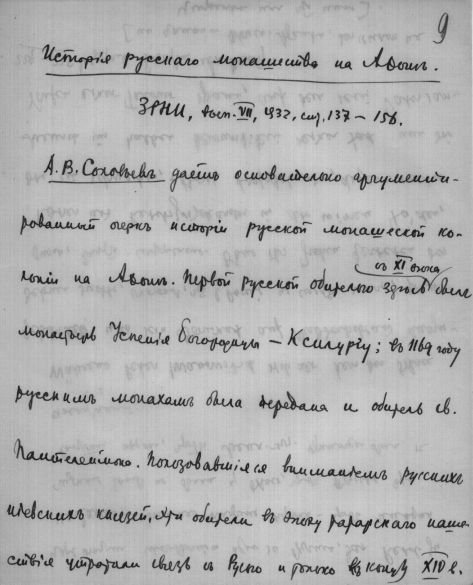 9
Исторія русскаго монашества на Аѳонѣ.
ЗРНИ, вып. VII, 1932, стр. 137 – 156.
А. В. Соловьевъ даетъ основательно аргументи-
рованный очеркъ исторіи русской монашеской ко-
лоніи на Аѳонѣ. Первой русской обителью здѣсь съ XI вѣка была
монастырь Успенія Богородицы – Ксилургу; въ 1169 году
русскимъ монахамъ была передана и обитель св.
Пантелеймона. Пользовавшіяся вниманіемъ русскихъ
кіевскихъ князей, эти обители въ эпоху татарскаго наше-
ствія утратили связь съ Русью и только въ концѣ XIV в.